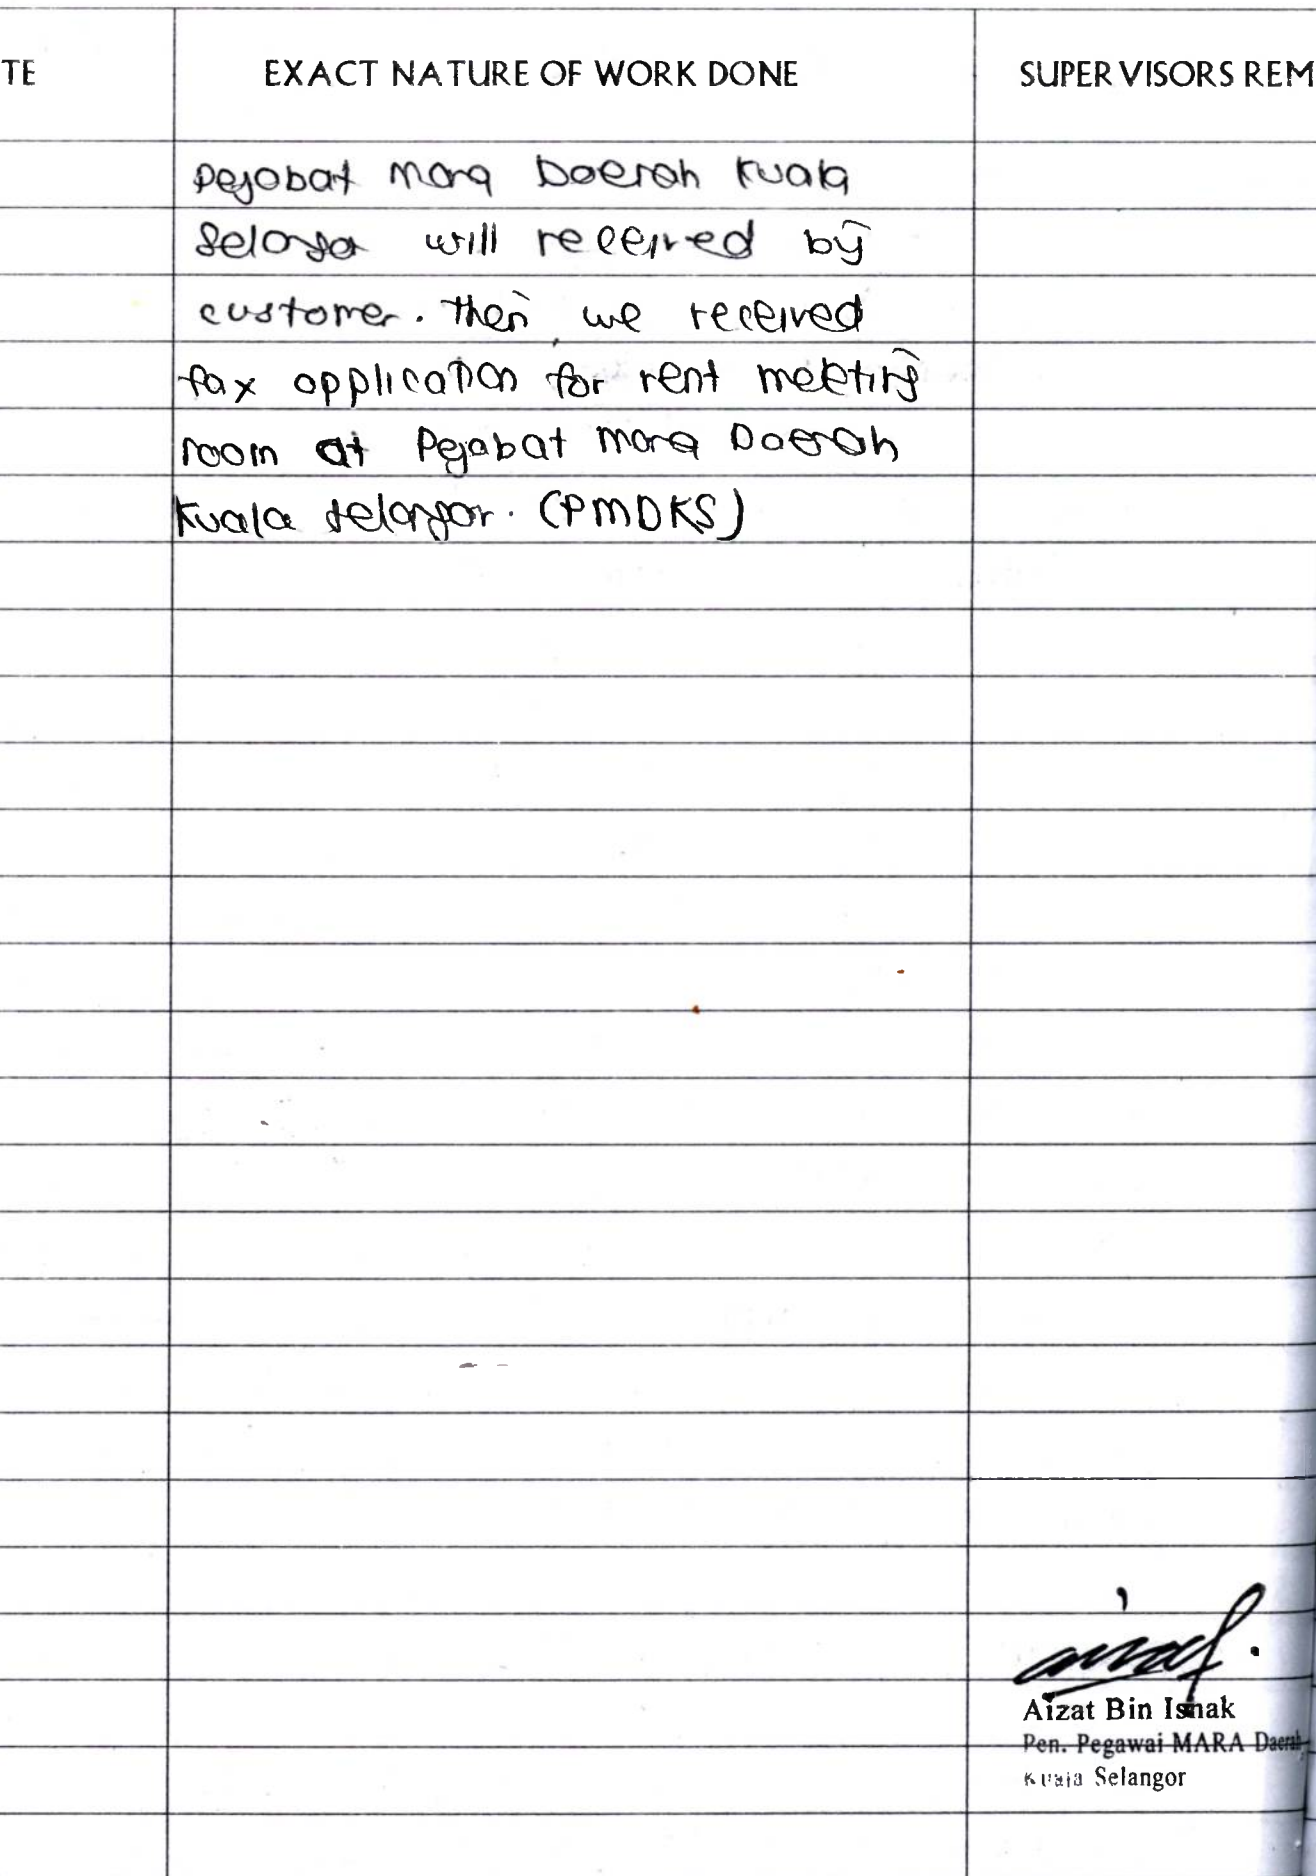 TE EXACT NATURE OF WORK DONE SUPERVISORS REM
Pejabat Mara Daerah Kuala
Selangor will received by
customer. Then we received
fax application for rent meeting
room at Pejabat Mara Daerah
Kuala Selangor. (PMDKS)
Aizat Bin Ishak
Pen. Pegawai MARA Daerah
Kuala Selangor